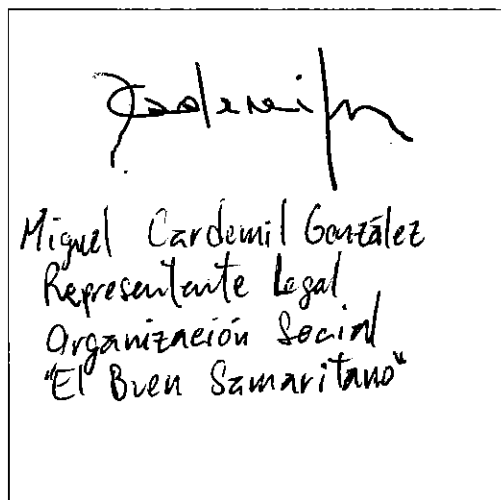 Miguel Cardemil González
Representante Legal
Organización Social
"El Buen Samaritano"